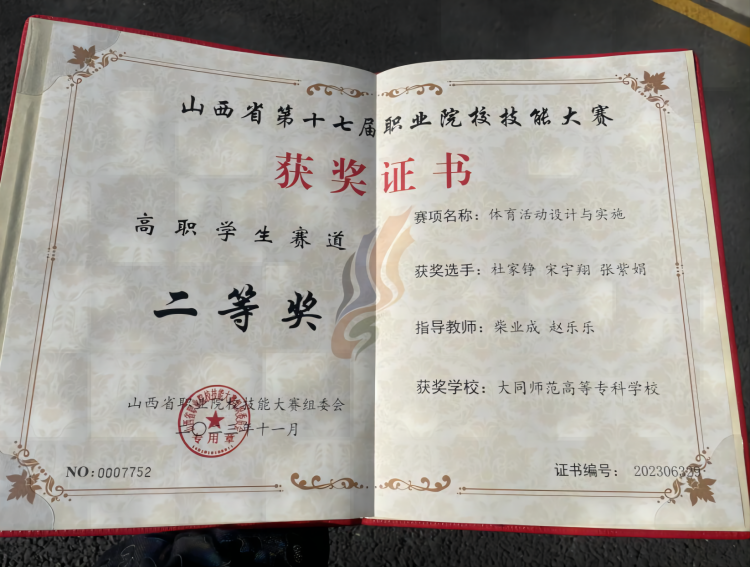 山西省第十七届职业院校技能大赛
获奖证书
高职学生赛道
二等奖
山西省职业院校技能大赛组委会
二〇二三年十一月
专用章
NO:0007752
赛项名称：体育活动设计与实施
获奖选手：杜家铮 宋宇翔 张紫娟
指导教师：柴业成 赵乐乐
获奖学校：大同师范高等专科学校
证书编号： 202306329